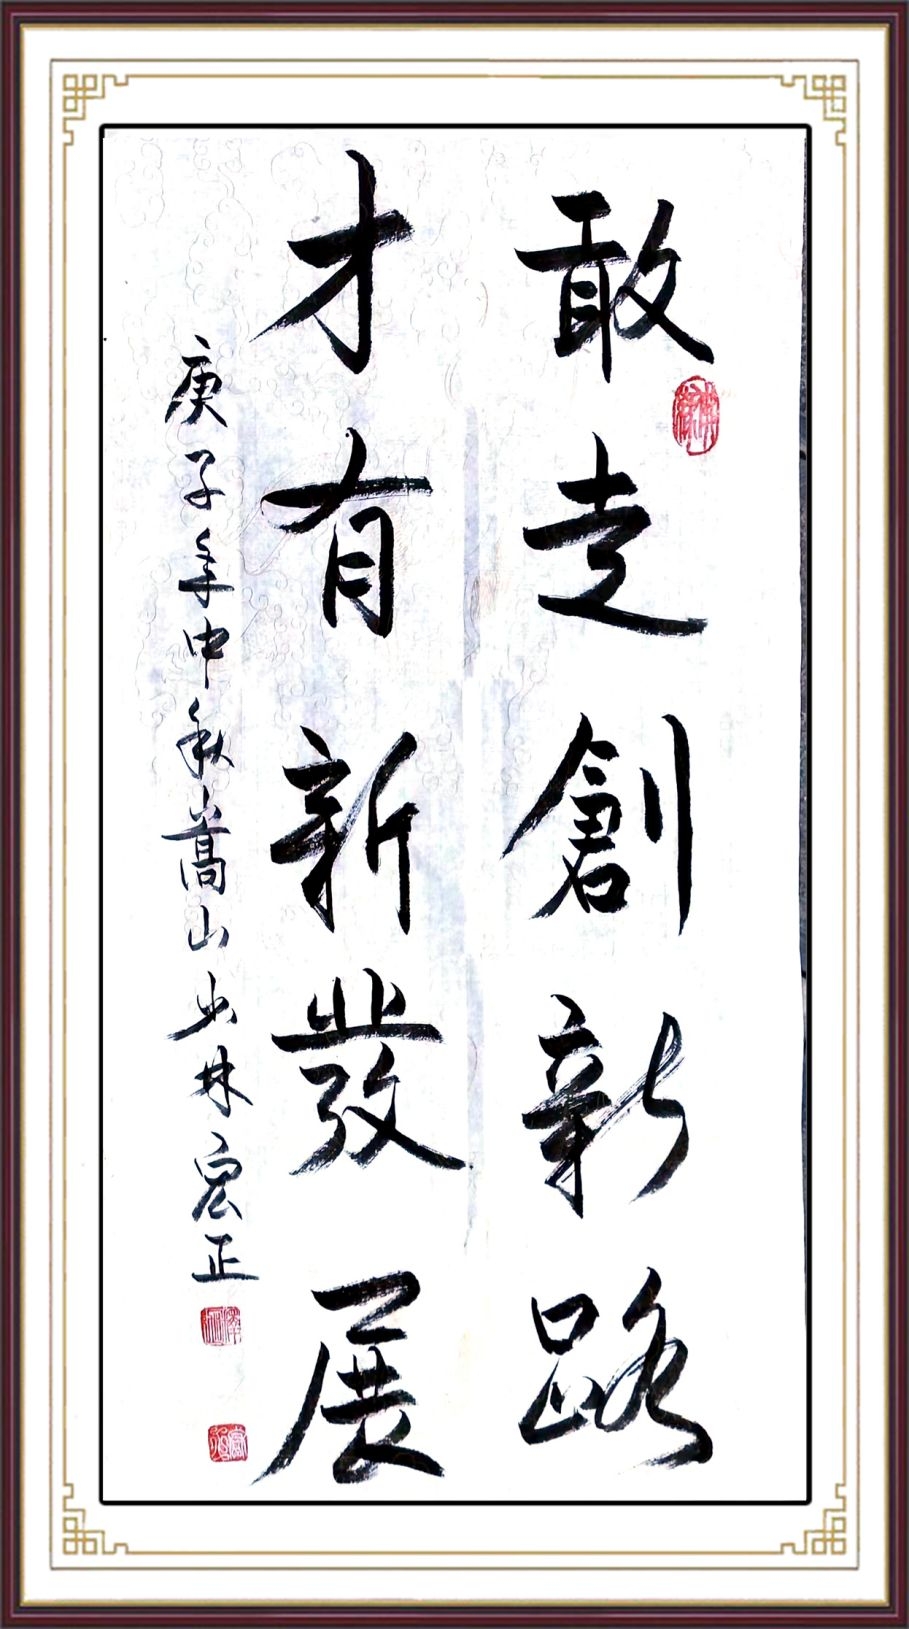 敢走創新路
才有新發展
庚子年中秋嵩山少林宏正